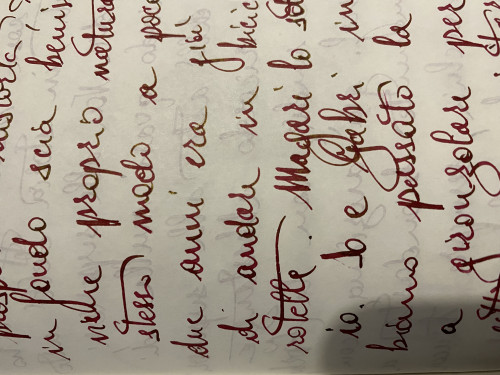 in fondo scia benis
niche proprio natura
stesso modo a poco
due anni era già
di andare in bici
rotelle. Magari lo so
io. b e Gabri in
biamo passato la
a gironzolare per